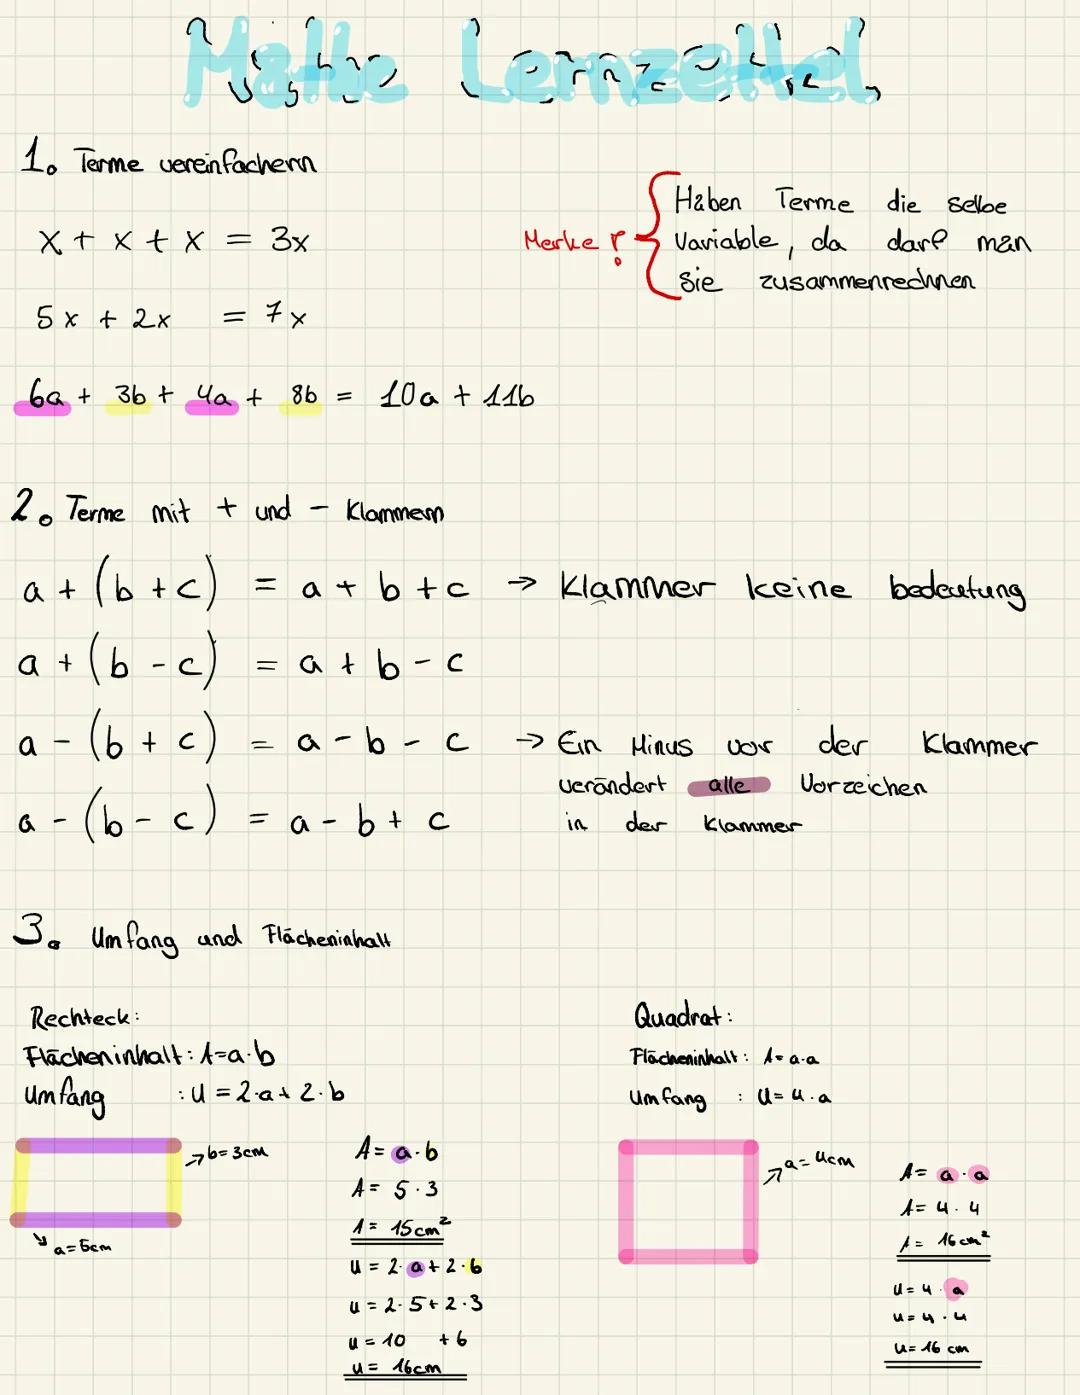 Mathe Lernzettel
1. Terme vereinfachern
x + x + x = 3x
5x + 2x = 7x
6a + 3b + 4a + 8b = 10a + 11b
Merke !
Haben Terme die selbe
Variable, da darf man
sie zusammenrechnen
2. Terme mit + und - Klammern
a + (b + c) = a + b + c → Klammer keine bedeutung
a + (b - c) = a + b - c
a - (b + c) = a - b - c → Ein Minus vor der Klammer
verändert alle Vorzeichen
in der Klammer
a - (b - c) = a - b + c
3. Umfang und Flächeninhalt
Rechteck:
Flächeninhalt: A=a·b
Umfang : U = 2·a + 2·b
b = 3cm
a = 5cm
A = a·b
A = 5·3
A = 15cm²
u = 2·a + 2·b
u = 2·5 + 2·3
u = 10 + 6
u = 16cm
Quadrat:
Flächeninhalt: A = a·a
Umfang : U = 4·a
a = 4cm
A = a·a
A = 4·4
A = 16cm²
U = 4·a
u = 4·4
u = 16 cm